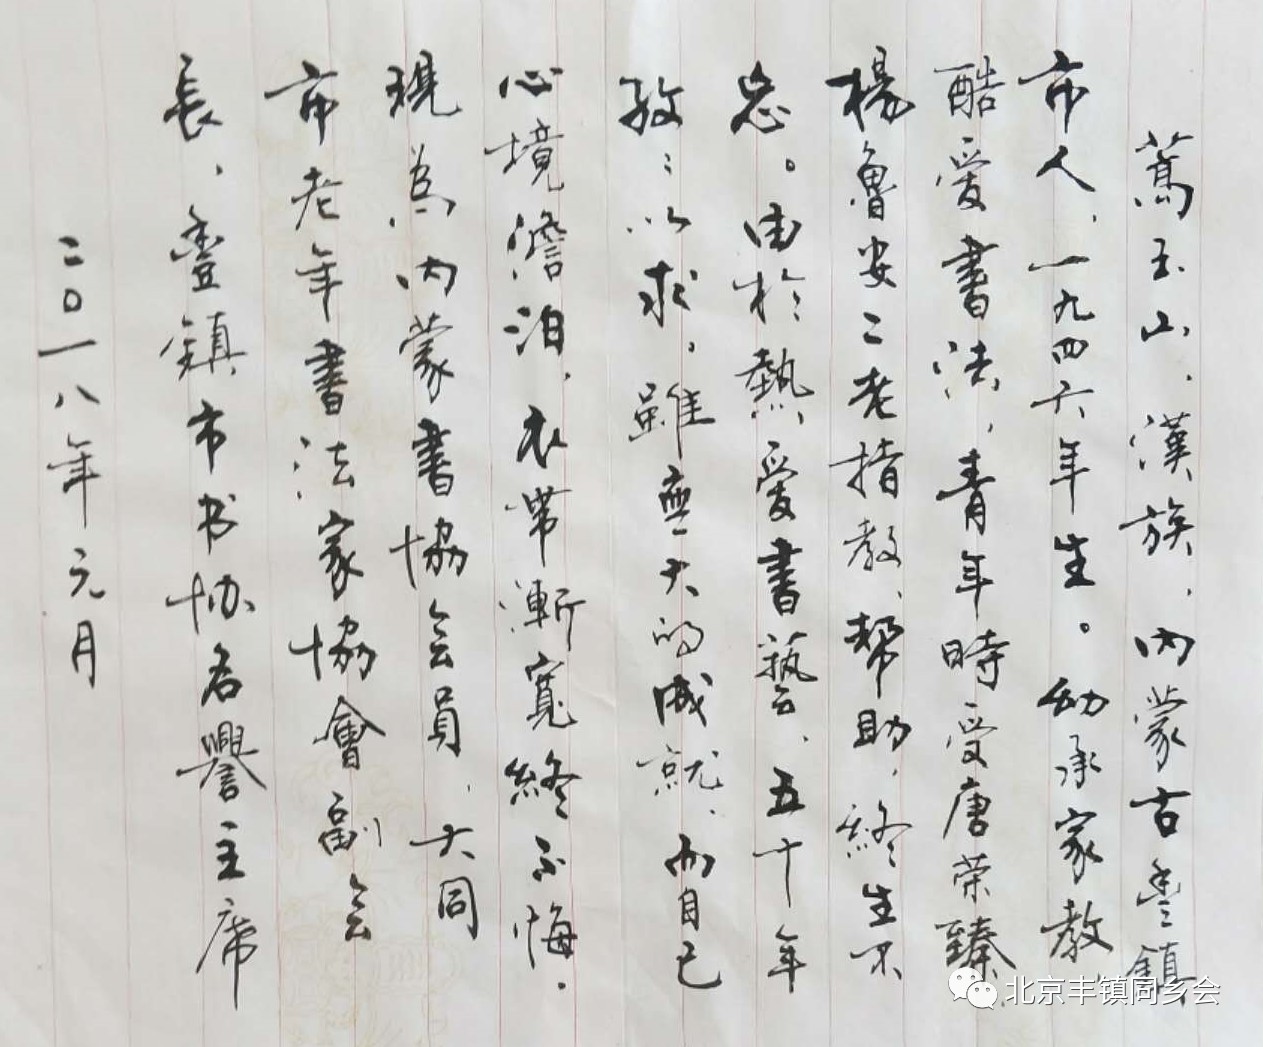 萬玉山，漢族，内蒙古豊鎮
市人，一九四六年生。幼承家教
酷爱書法，青年時受唐荣臻
楊魯安二老指教、帮助，终生不
忘。由於熱爱書藝，五十年
孜：以求，雖無大的成就，而自己
心境澹泊，衣帶漸寬終不悔。
現為内蒙書協会員，大同
市老年書法家協會副会
長，豊鎮市书协名譽主席
二〇一八年元月
北京丰镇同乡会